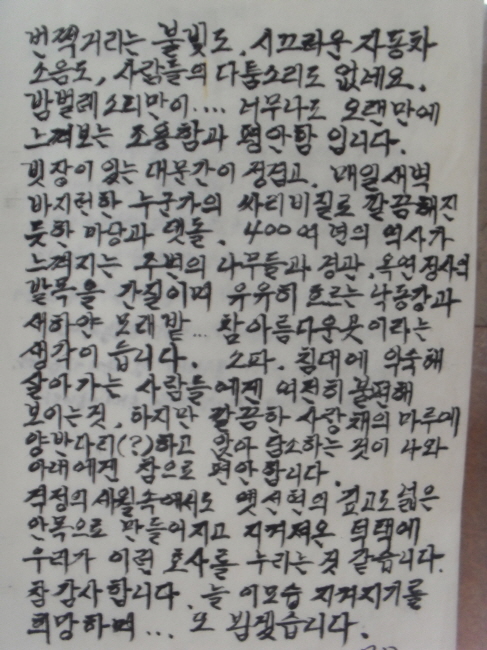 번잭거리는 불빛도, 시끄러운 자동차
소음도, 사람들의 다툼소리도 없네요.
밤벌레소리만이.... 너무나도 오랜만에
느껴보는 조용함과 평안함 입니다.
빗장이 있는 대문간이 정겹고, 매일새벽
바지런한 누군가의 싸리비질로 깔끔해진
듯한 마당과 댓돌, 400여 년의 역사가
느껴지는 주변의 나무들과 경관, 옥연정사의
발목을 간질이며 유유히 흐르는 낙동강과
새하얀 모래밭... 참아름다운곳이라는
생각이 듭니다. 소파, 침대에 익숙해
살아가는 사람들에겐 여전히불편해
보이는것, 하지만 깔끔한 사랑채의 마루에
양반다리(?)하고 앉아 담소하는 것이 나와
아내에겐 참으로 편안합니다.
격정의 세월속에서도 옛선현의 깊고도넓은
안목으로 만들어지고 지켜져온 덕택에
우리가 이런 호사를 누리는 것 같습니다.
참 감사합니다. 늘 이모습 지켜지기를
희망하며... 또 뵙겠습니다.